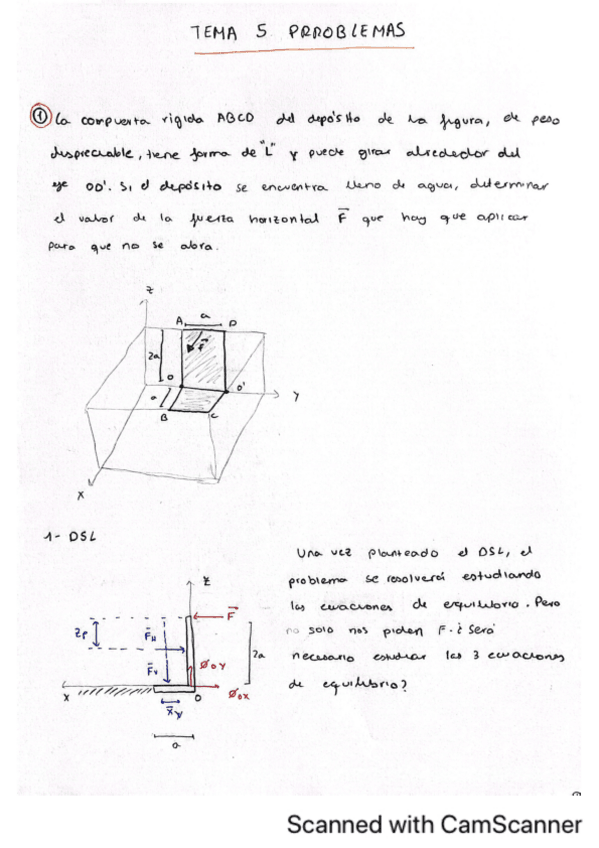 TEMA 5 PRROBLEMAS
① La compuerta rigida ABCD del depósito de la figura, de peso
despreciable, tiene forma de "L" y puede girar alrededor del
eje OO'. Si el depósito se encuentra lleno de agua, determinar
el valor de la fuerza horizontal F que hay que aplicar
para que no se abra.
z
A a D
F
2a
O O'
a
Y
B C
X
1- DSL
Una vez planteado el DSL, el
problema se resolverá estudiando
las ecuaciones de equilibrio. Pero
no solo nos piden F. ¿ Será
necesario estudiar las 3 ecuaciones
de equilibrio?
Z
F
FH
2a
FV
X O
a
Scanned with CamScanner